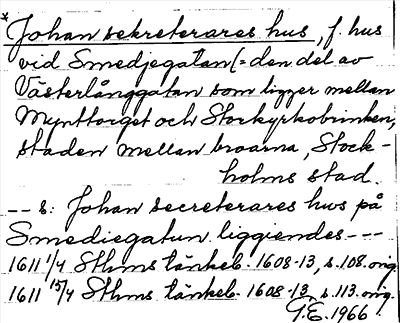 * Johan sekreterares hus, f. hus
vid Smedjegatan (= den del av
Västerlånggatan som ligger mellan
Mynttorget och Storkyrkobrinken,
staden mellan broarna, Stock-
holms stad.
-- s: Johan secreterares hus på
Smediegatun liggiendes ---
1611 1/4 Sthms tänkeb. 1608-13, s. 108. orig.
1611 15/4 Sthms tänkeb. 1608-13, s. 113. orig.
G.E. 1966